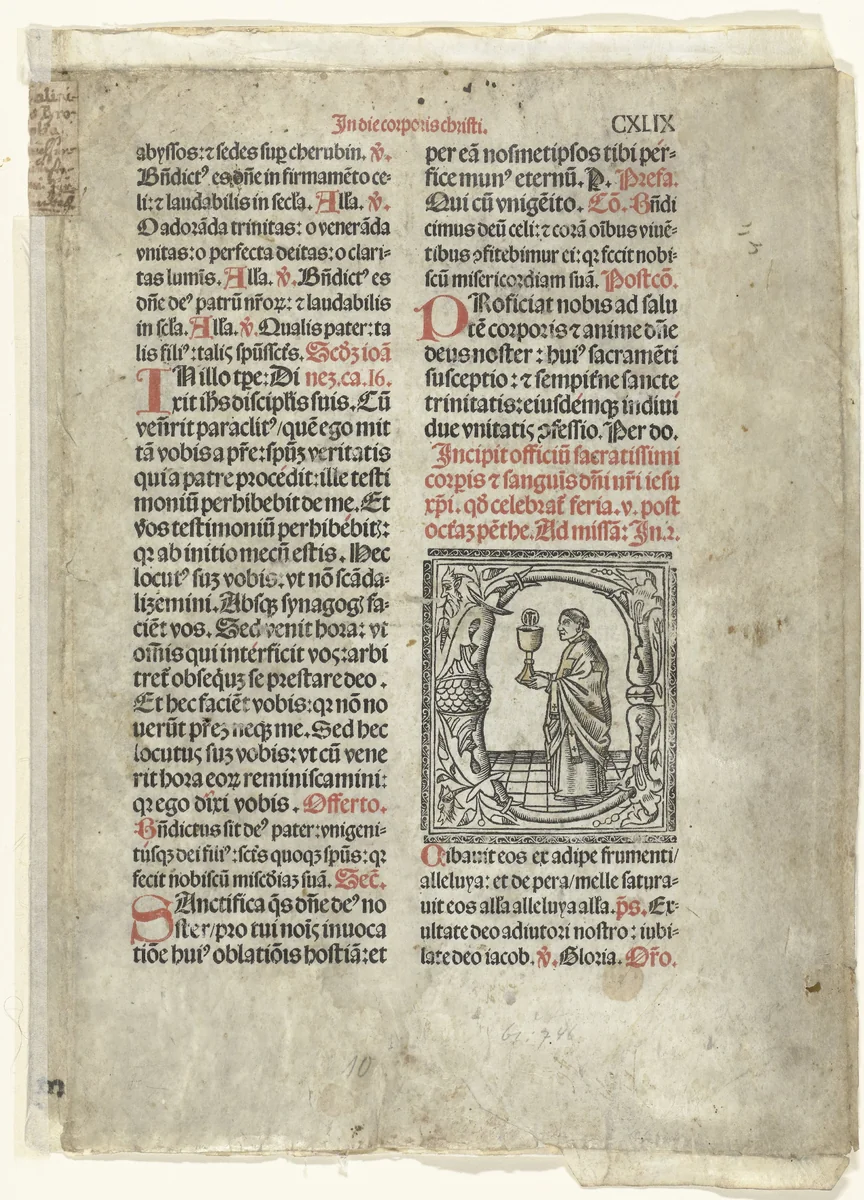 In die corporis christi.
CXLIX
abyssos: ⁊ sedes sup cherubin. ꝟ.
Bñdictꝰ es dñe in firmamẽto ce-
li: ⁊ laudabilis in secła. Alła. ꝟ.
O adorãda trinitas: o venerãda
vnitas: o perfecta deitas: o clari-
tas lumĩs. Alła. ꝟ. Bñdictꝰ es
dñe deꝰ patrũ nr̃oꝝ: ⁊ laudabilis
in scła. Alła. ꝟ. Qualis pater: ta
lis filiꝰ: talis spũssct̃s. Scḋꝫ ioã
IN illo tp̃e: Di nez. ca. 16.
xit ih̃s discipłis suis. Cũ
veñrit paraclitꝰ/ quẽ ego mit
tã vobis a pr̃e: spũꝫ veritatis
qui a patre procedit: ille testi
moniũ perhibebit de me. Et
vos testimoniũ perhibebit⁊:
qꝛ ab initio mecũ estis. Hec
locutꝰ suꝫ vobis. vt nõ scãda-
lizemini. Absqꝫ synagog⁊ fa-
ciẽt vos. Sed venit hora: vt
om̃is qui interficit vos: arbi
tret̃ obsequꝫ se prestare deo.
Et hec faciẽt vobis: qꝛ nõ no
uerũt pr̃eꝫ neqꝫ me. Sed hec
locutus suꝫ vobis: vt cũ vene
rit hora eoꝝ reminiscamini:
qꝛ ego dixi vobis. Offerto.
Bñdictus sit deꝰ pater: vnigeni-
tusqꝫ dei filiꝰ: sct̃s quoqꝫ spũs: qꝛ
fecit nobiscũ misc̃diaꝫ suã. Secr̃.
SAnctifica q̃s dñe deꝰ no
ster/ pro tui noĩs inuoca
tiõe huiꝰ oblatiõis hostiã: et
per eã nosmetipsos tibi per-
fice munꝰ eternũ. P. Prefa.
Qui cũ vnigẽito. Cõ. Bñdi
cimus deũ celi: ⁊ corã oĩbus viuẽ-
tibus ꝯfitebimur ei: qꝛ fecit nobi-
scũ misericordiam suã. Postcõ.
PRoficiat nobis ad salu
tẽ corporis ⁊ anime dñe
deus noster: huiꝰ sacramẽti
susceptio: ⁊ sempitr̃ne sancte
trinitatis: eiusdemqꝫ indiui
due vnitatis ꝯfessio. Per do.
Incipit officiũ sacratissimi
corpis ⁊ sanguĩs dñi nr̃i iesu
xp̃i. qḋ celebrat̃ feria. v. post
octaꝫ pẽthe. Ad missã: In.r.
Cibauit eos ex adipe frumenti/
alleluya: et de pera/ melle satura-
uit eos ałła alleluya ałła. p̃s. Ex-
ultate deo adiutori nostro: iubi-
late deo iacob. ꝟ. Gloria. Or̃o.
10